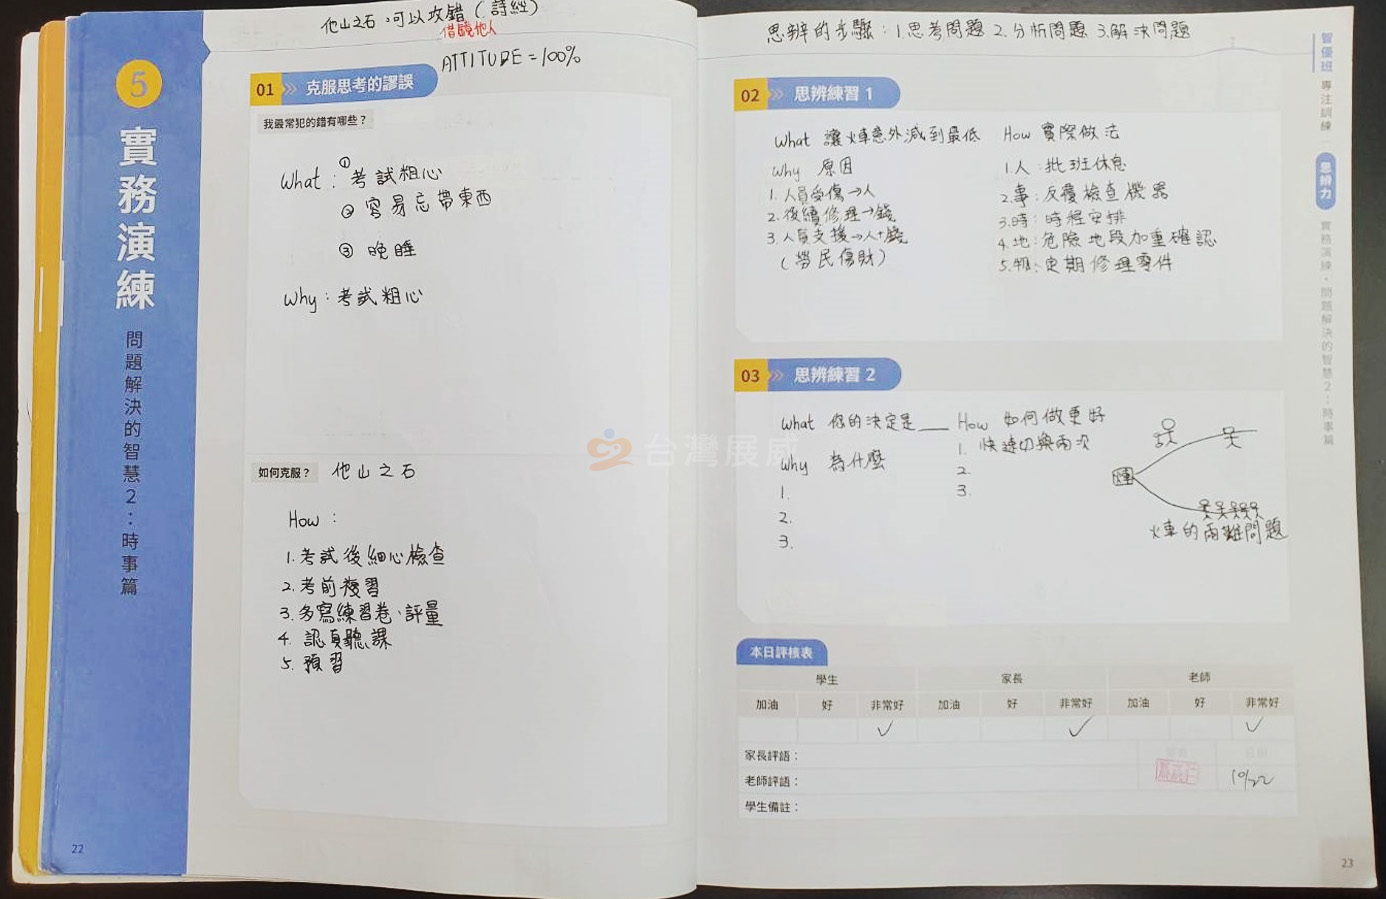 他山之石,可以攻錯(詩經)
借鏡他人
ATTITUDE=100%
5
實務演練
問題解決的智慧2：時事篇
01 克服思考的謬誤
我最常犯的錯有哪些？
What：①考試粗心
②容易忘帶東西
③晚睡
Why：考試粗心
如何克服？ 他山之石
How：
1.考試後細心檢查
2.考前複習
3.多寫練習卷、評量
4.認真聽課
5.預習
22
思辨的步驟：1.思考問題 2.分析問題 3.解決問題
02 思辨練習 1
What 讓火車意外減到最低
Why 原因
1.人員受傷→人
2.後續修理→錢
3.人員支援→人+錢
(勞民傷財)
How 實際做法
1.人：批班休息
2.事：反覆檢查機器
3.時：時程安排
4.地：危險地段加重確認
5.物：定期修理零件
03 思辨練習 2
What 您的決定是___
Why 為什麼
1.
2.
3.
How 如何做更好
1. 快速切換兩次
2.
3.
火車的兩難問題
台灣展威
本日評核表
學生 家長 老師
加油 好 非常好 加油 好 非常好 加油 好 非常好
家長評語：
老師評語：
10/22
學生備註：
智優班 專注訓練
思辨力
實務演練・問題解決的智慧2：時事篇
23